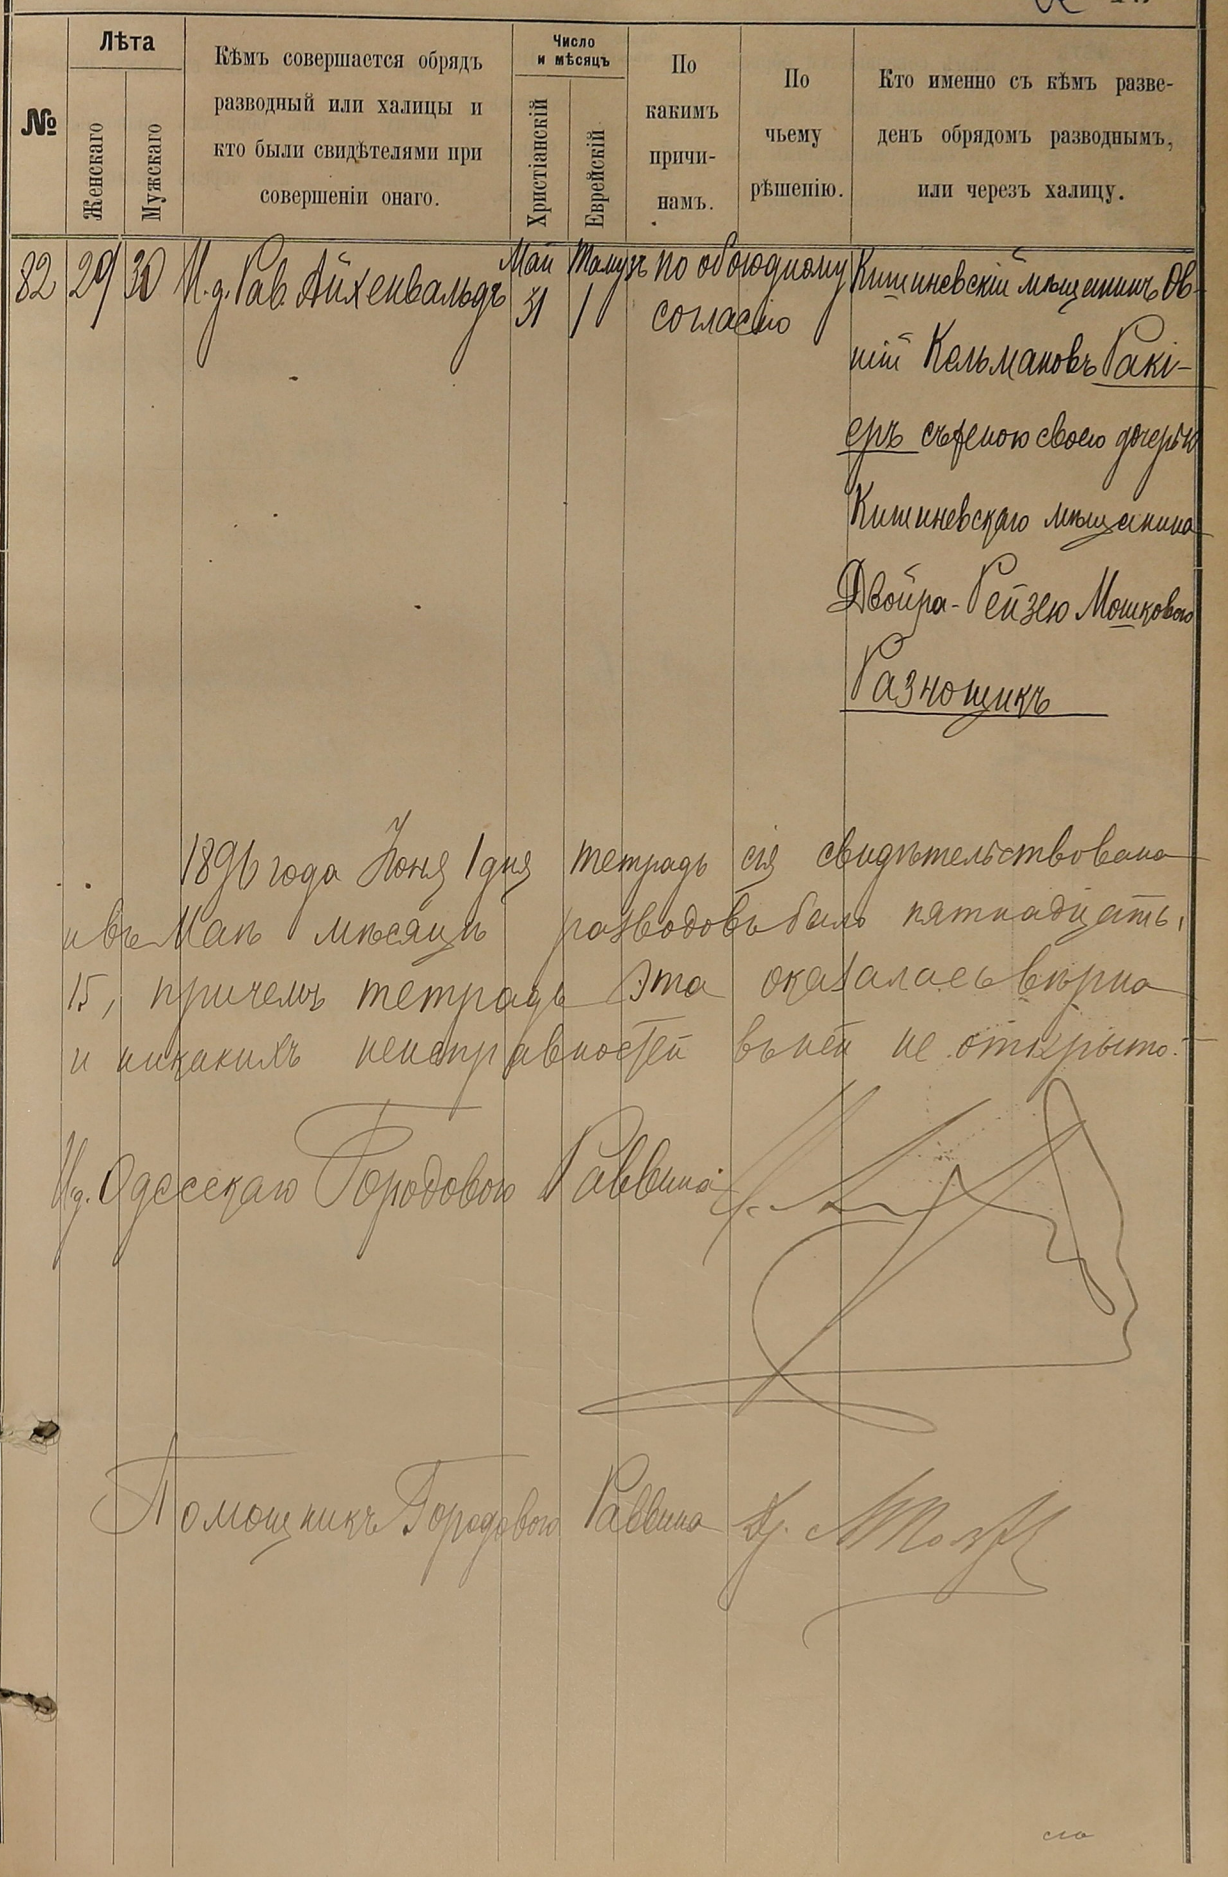 №
Лѣта
Женскаго
Мужскаго
Кѣмъ совершается обрядъ
разводный или халицы и
кто были свидѣтелями при
совершеніи онаго.
Число
и мѣсяцъ
Христіанскій
Еврейскій
По
какимъ
причи-
намъ.
По
чьему
рѣшенію.
Кто именно съ кѣмъ разве-
денъ обрядомъ разводнымъ,
или черезъ халицу.
82 29 30 И.д. Рав. Айхенвальдъ
Май
31
Тамузъ
1
по обоюдному
согласію
Кишиневскій мѣщанинъ Ов-
шій Кельмановъ Ракі-
еръ съ женою своею дочерью
Кишиневскаго мѣщанина
Двойра-Рейзею Мошковою
Разнощикъ
1896 года Іюня 1 дня тетрадь сія свидѣтельствована
и въ Маѣ мѣсяцѣ разводовъ было пятнадцать,
15, причемъ тетрадь эта оказалась вѣрна
и никакихъ неисправностей въ ней не открыто.
И.д. Одесскаго Городового Раввина
Помощникъ Городового Раввина